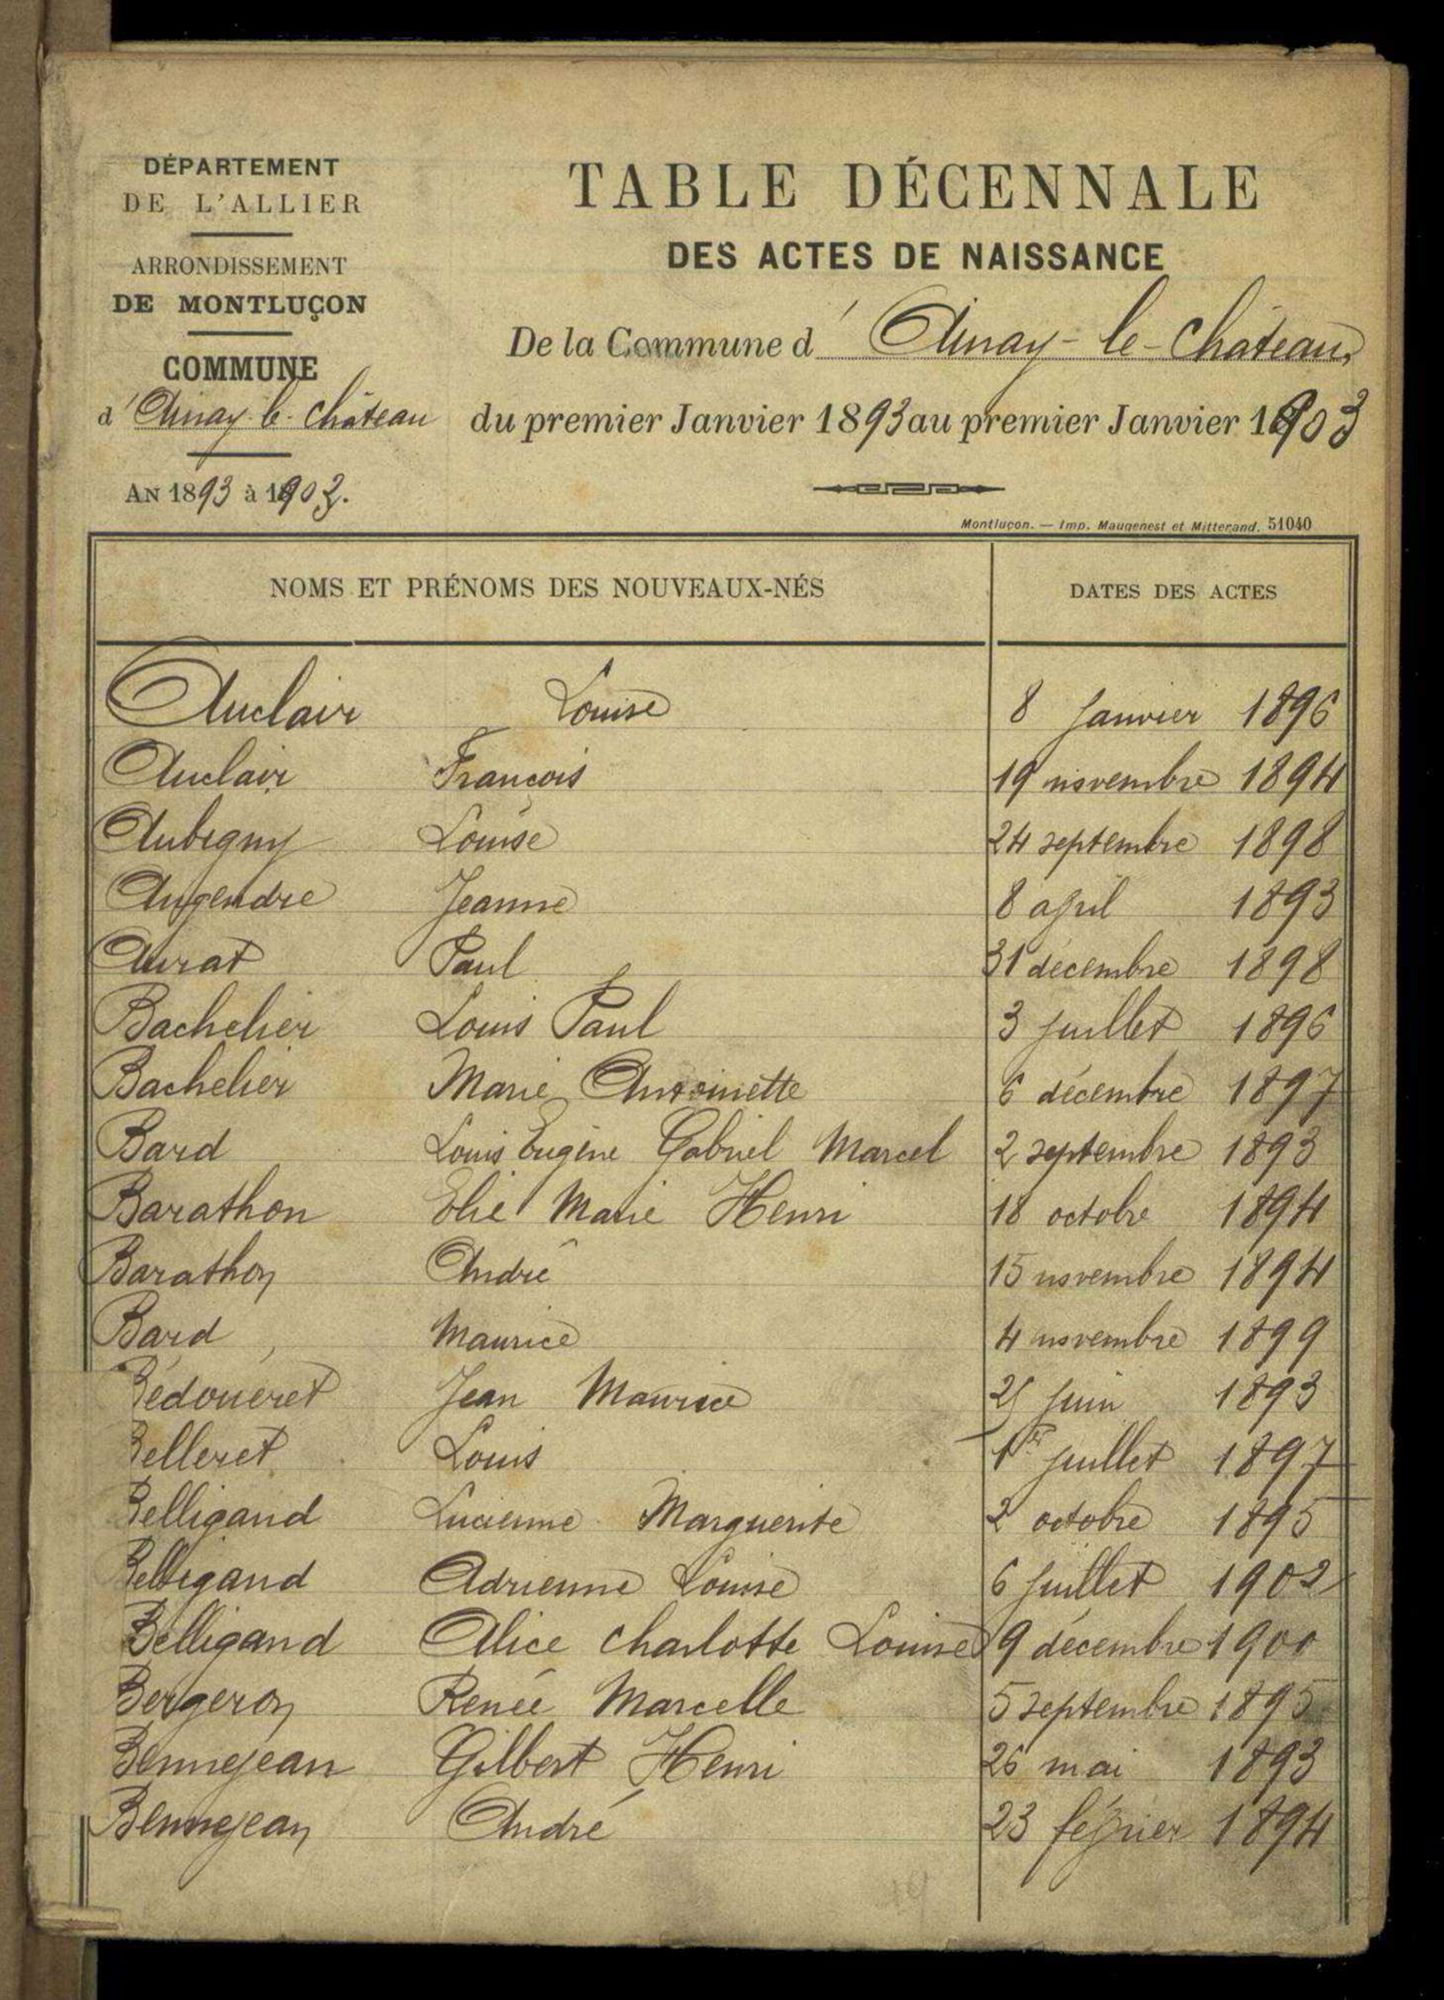 DÉPARTEMENT
DE L'ALLIER
ARRONDISSEMENT
DE MONTLUÇON
COMMUNE
d'Ainay-le-Château
AN 1893 à 1903.
TABLE DÉCENNALE
DES ACTES DE NAISSANCE
De la Commune d'Ainay-le-Château
du premier Janvier 1893 au premier Janvier 1903
Montluçon. — Imp. Maugenest et Mitterand. 51040
NOMS ET PRÉNOMS DES NOUVEAUX-NÉS DATES DES ACTES
Auclair Louise 8 Janvier 1896
Auclair François 19 novembre 1894
Aubigny Louise 24 septembre 1898
Augendre Jeanne 8 avril 1893
Aurat Paul 31 décembre 1898
Bachelier Louis Paul 3 juillet 1896
Bachelier Marie Antoinette 6 décembre 1897
Bard Louis Eugène Gabriel Marcel 2 septembre 1893
Barathon Elie Marie Henri 18 octobre 1894
Barathon André 15 novembre 1894
Bard Maurice 4 novembre 1899
Bédoueret Jean Maurice juin 1893
Belleret Louis 1er juillet 1897
Belligand Lucienne Marguerite 2 octobre 1895
Belligand Adrienne Louise 6 juillet 1902
Belligand Alice Charlotte Louise 9 décembre 1900
Bergeron Renée Marcelle 5 septembre 1895
Bennejean Gilbert Henri 26 mai 1893
Bennejean André 23 février 1894